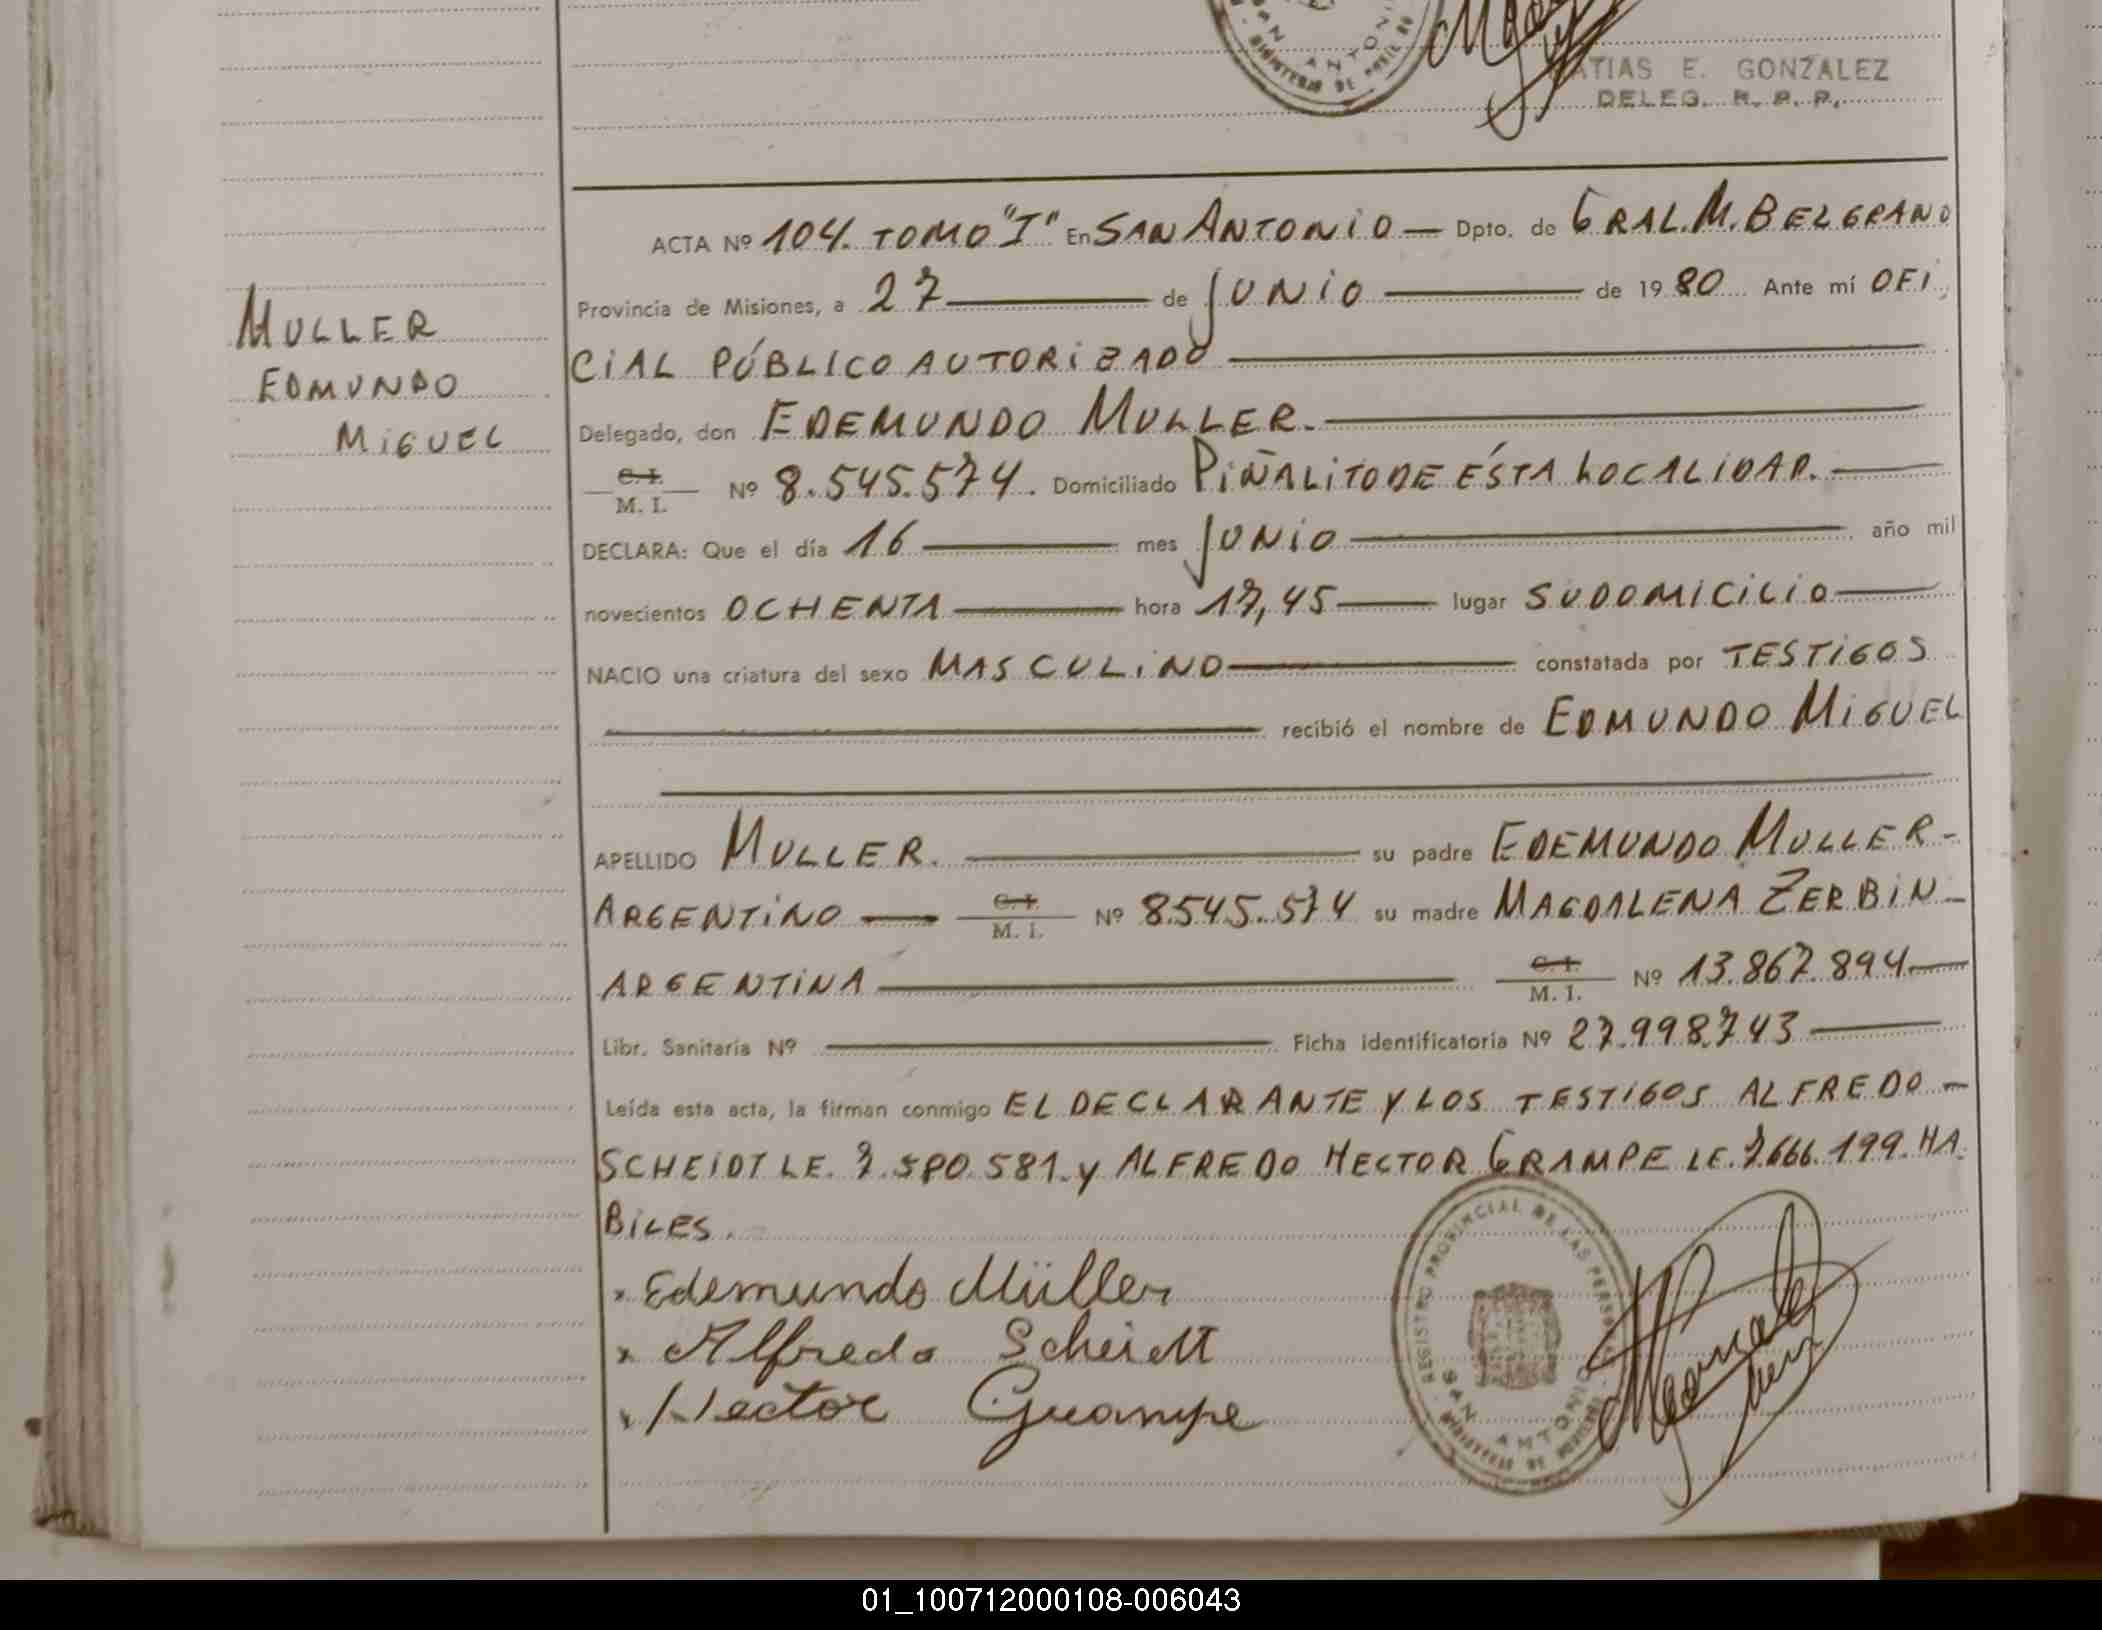 ATIAS E. GONZALEZ
DELEG. R. P. P.
MULLER
EDMUNDO
MIGUEL
ACTA Nº 104. TOMO "I" En SAN ANTONIO — Dpto. de GRAL. M. BELGRANO
Provincia de Misiones, a 27 de JUNIO de 1980 Ante mí OFI
CIAL PÚBLICO AUTORIZADO
Delegado, don EDEMUNDO MULLER.
C. I.
M. I. Nº 8.545.574. Domiciliado PIÑALITO DE ÉSTA LOCALIDAD.
DECLARA: Que el día 16 mes JUNIO año mil
novecientos OCHENTA hora 17,45 lugar SU DOMICILIO
NACIO una criatura del sexo MASCULINO constatada por TESTIGOS
recibió el nombre de EDMUNDO MIGUEL
APELLIDO MULLER. su padre EDEMUNDO MULLER-
ARGENTINO — C. I. M. I. Nº 8.545.574 su madre MAGDALENA ZERBIN-
ARGENTINA C. I. M. I. Nº 13.867.894
Libr. Sanitaria Nº Ficha identificatoria Nº 27.998.743
Leída esta acta, la firman conmigo EL DECLARANTE Y LOS TESTIGOS ALFREDO -
SCHEIDT LE. 7.580.581. y ALFREDO HECTOR GRAMPE LE. 7.666.199. HA
BILES.
Edemundo Müller
Alfredo Scheidt
Hector Grampe
REGISTRO PROVINCIAL DE LAS PERSONAS
SAN ANTONIO
MINISTERIO DE
01_100712000108-006043